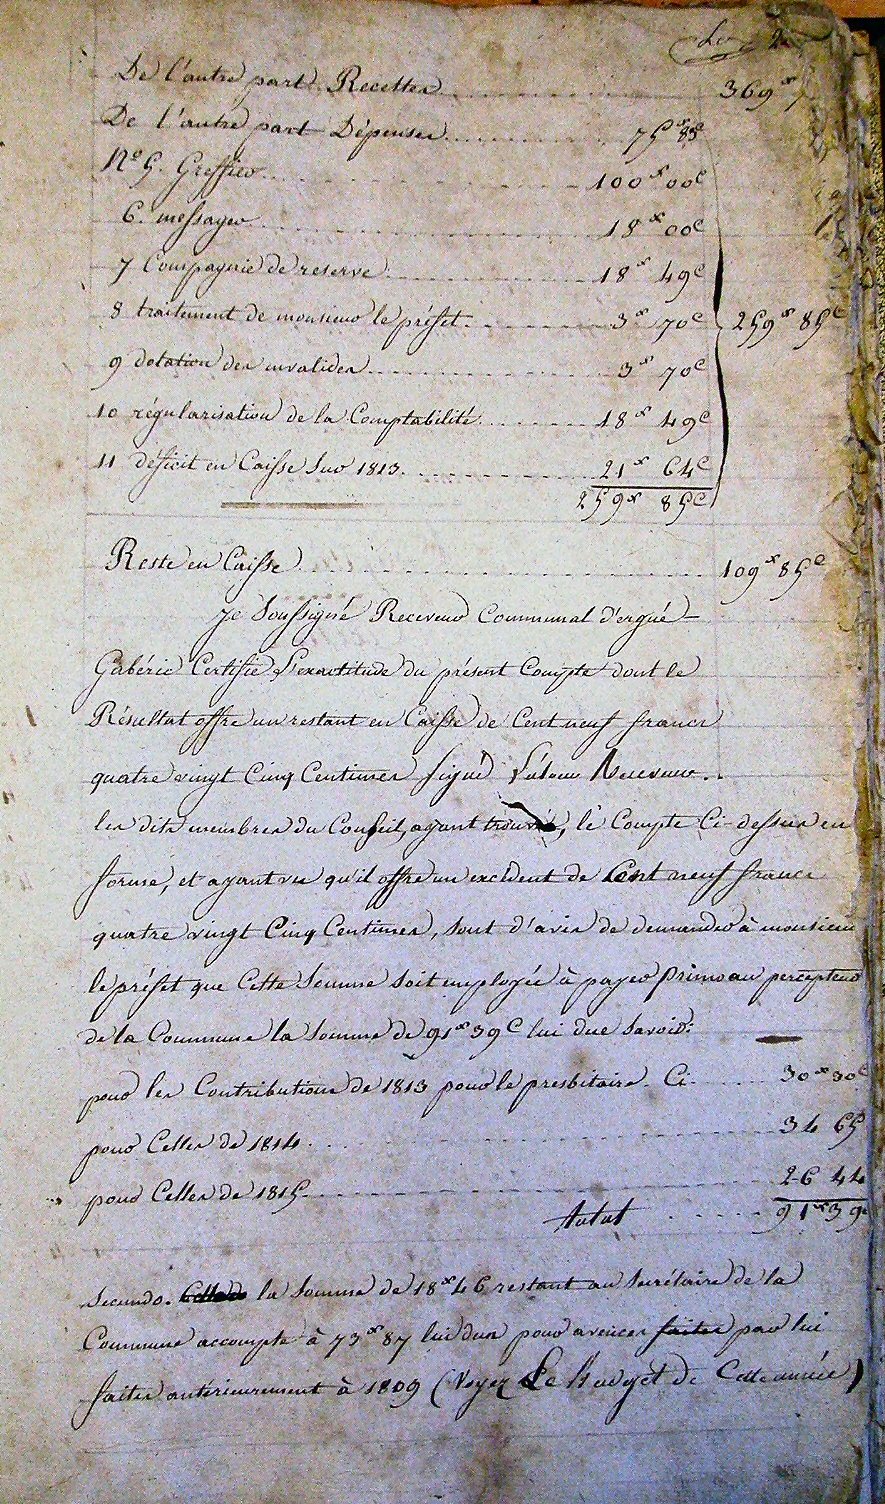 De l'autre part Recettes 369 x 7
De l'autre part Dépenses 75 x 83c
No 5. Greffier 100 x 00c
6. messager 18 x 00c
7 Compagnie de reserve 18 x 49c
8 traitement de monsieur le préfet 3 x 70c 259 x 85c
9 dotation des invalides 3 x 70c
10 régularisation de la Comptabilité 18 x 49c
11 déficit en Caisse sur 1813 21 x 64c
259 x 85c
Reste en Caisse 109 x 85c
Je Soussigné Receveur Communal d'ergué
Gabéric Certifie l'exactitude du présent Compte dont le
Résultat offre un restant en Caisse de Cent neuf francs
quatre vingt Cinq Centimes signé Receveur.
les dits membres du Conseil, ayant trouvé, le Compte Ci-dessus en
forme, et ayant vu qu'il offre un excédent de Cent neuf francs
quatre vingt Cinq Centimes, sont d'avis de demander à monsieur
le préfet que Cette Somme soit employée à payer primo au percepteur
de la Commune la Somme de 91 x 39c lui due Savoir:
pour les Contributions de 1813 pour le presbitaire Ci 30 x 30c
pour Celles de 1814 34 65
pour Celles de 1815 26 44
total 91 x 39c
Secundo. la Somme de 18 x 46 restant au Secrétaire de la
Commune accompte à 73 x 87 lui dus pour avances faites par lui
faites antérieurement à 1809 (Voyez Le Budget de Cette année)